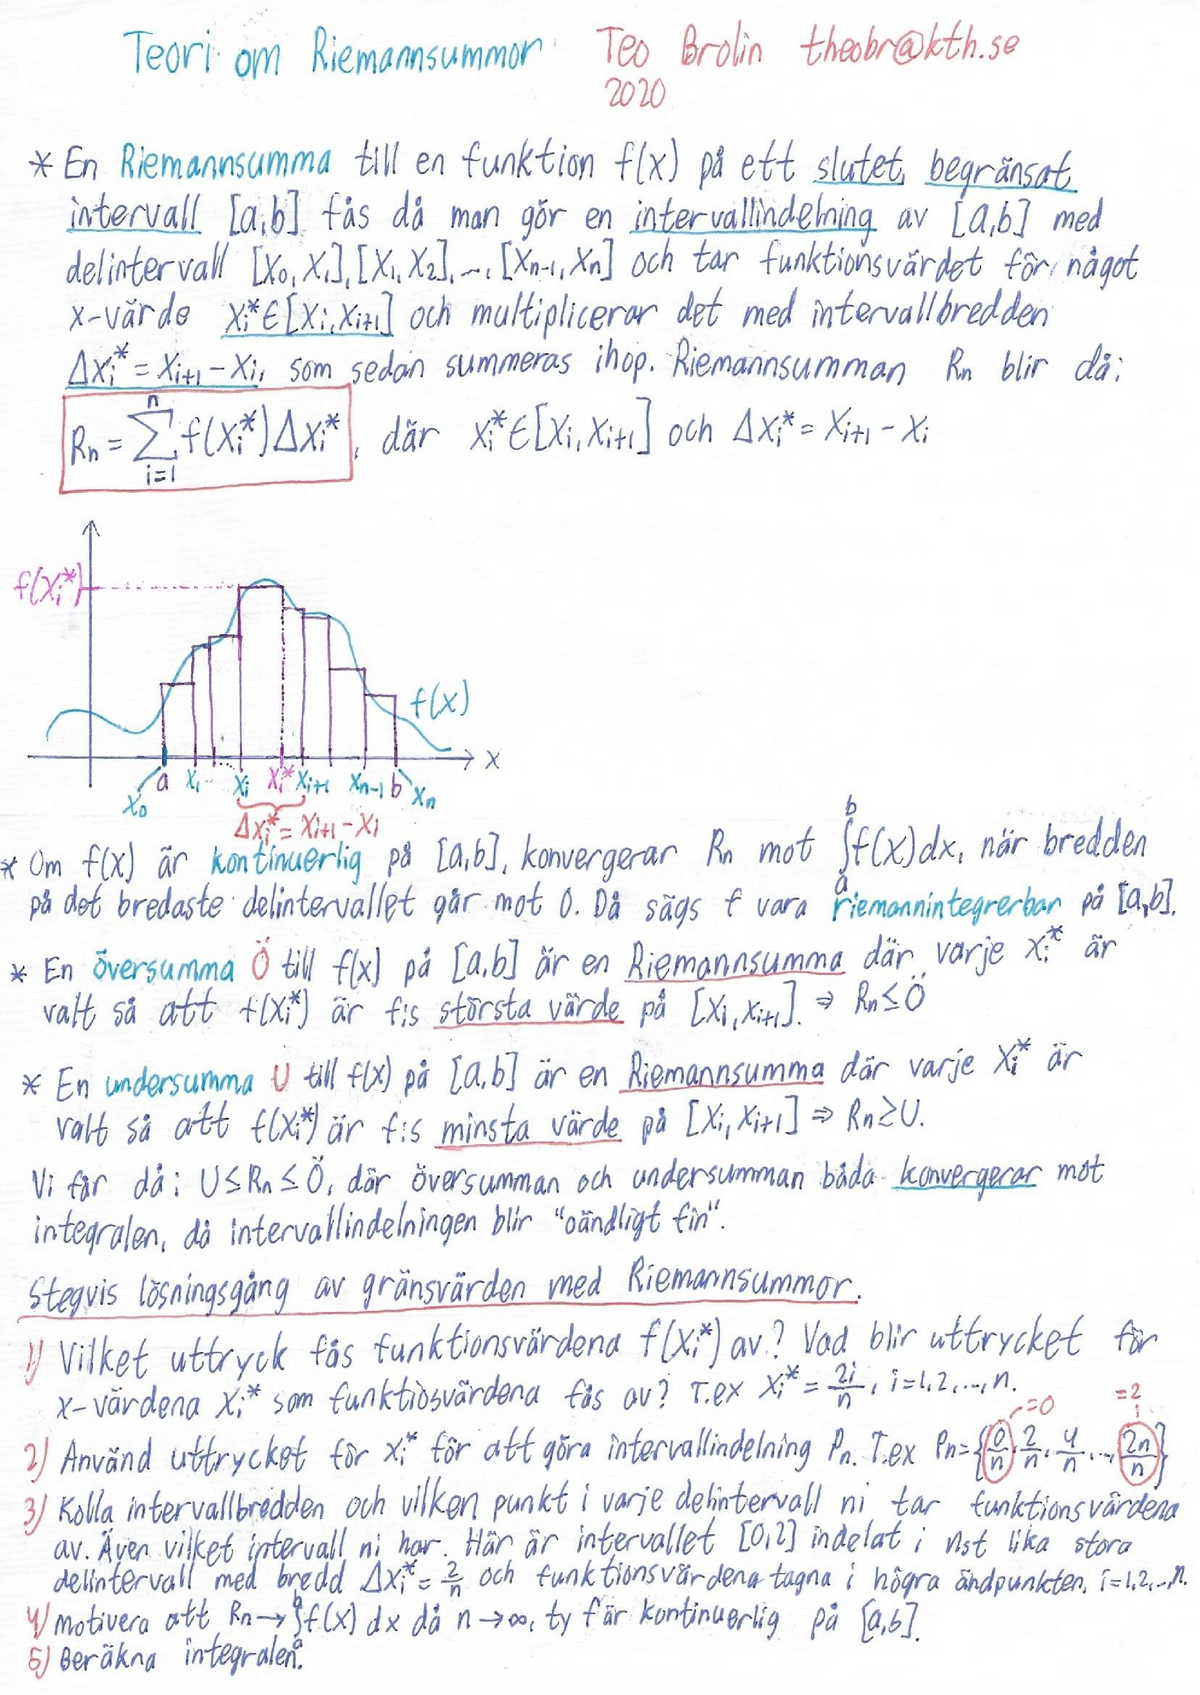 Teori om Riemannsummor Teo Brolin theobr@kth.se
2020
* En Riemannsumma till en funktion f(x) på ett slutet, begränsat
intervall [a,b] fås då man gör en intervallindelning av [a,b] med
delintervall [x₀,x₁],[x₁,x₂],...,[xₙ₋₁,xₙ] och tar funktionsvärdet för något
x-värde xᵢ*∈[xᵢ,xᵢ₊₁] och multiplicerar det med intervallbredden
Δxᵢ*=xᵢ₊₁-xᵢ, som sedan summeras ihop. Riemannsumman Rₙ blir då:
Rₙ = ∑ᵢ₌₁ⁿ f(xᵢ*)Δxᵢ*, där xᵢ*∈[xᵢ,xᵢ₊₁] och Δxᵢ*=xᵢ₊₁-xᵢ
f(xᵢ*)
f(x)
x
a x₁ ... xᵢ xᵢ* xᵢ₊₁ xₙ₋₁ b
x₀ xₙ
Δxᵢ*=xᵢ₊₁-xᵢ
* Om f(x) är kontinuerlig på [a,b], konvergerar Rₙ mot ∫ₐᵇf(x)dx, när bredden
på det bredaste delintervallet går mot 0. Då sägs f vara riemannintegrerbar på [a,b].
* En översumma Ö till f(x) på [a,b] är en Riemannsumma där varje xᵢ* är
valt så att f(xᵢ*) är f:s största värde på [xᵢ,xᵢ₊₁]. ⇒ Rₙ≤Ö
* En undersumma U till f(x) på [a,b] är en Riemannsumma där varje xᵢ* är
valt så att f(xᵢ*) är f:s minsta värde på [xᵢ,xᵢ₊₁] ⇒ Rₙ≥U.
Vi får då: U≤Rₙ≤Ö, där översumman och undersumman båda konvergerar mot
integralen, då intervallindelningen blir "oändligt fin".
Stegvis lösningsgång av gränsvärden med Riemannsummor.
1) Vilket uttryck fås funktionsvärdena f(xᵢ*) av? Vad blir uttrycket för
x-värdena xᵢ* som funktiosvärdena fås av? T.ex xᵢ*=2i/n, i=1,2,...,n.
=0 =2
2) Använd uttrycket för xᵢ* för att göra intervallindelning Pₙ. T.ex Pₙ={0/n, 2/n, 4/n, ..., 2n/n}
3) Kolla intervallbredden och vilken punkt i varje delintervall ni tar funktionsvärdena
av. Även vilket intervall ni har. Här är intervallet [0,2] indelat i nst lika stora
delintervall med bredd Δxᵢ*=2/n och funktionsvärdena tagna i högra ändpunkten, i=1,2,..,n.
4) Motivera att Rₙ→∫ₐᵃf(x)dx då n→∞, ty f är kontinuerlig på [a,b].
5) Beräkna integralen.